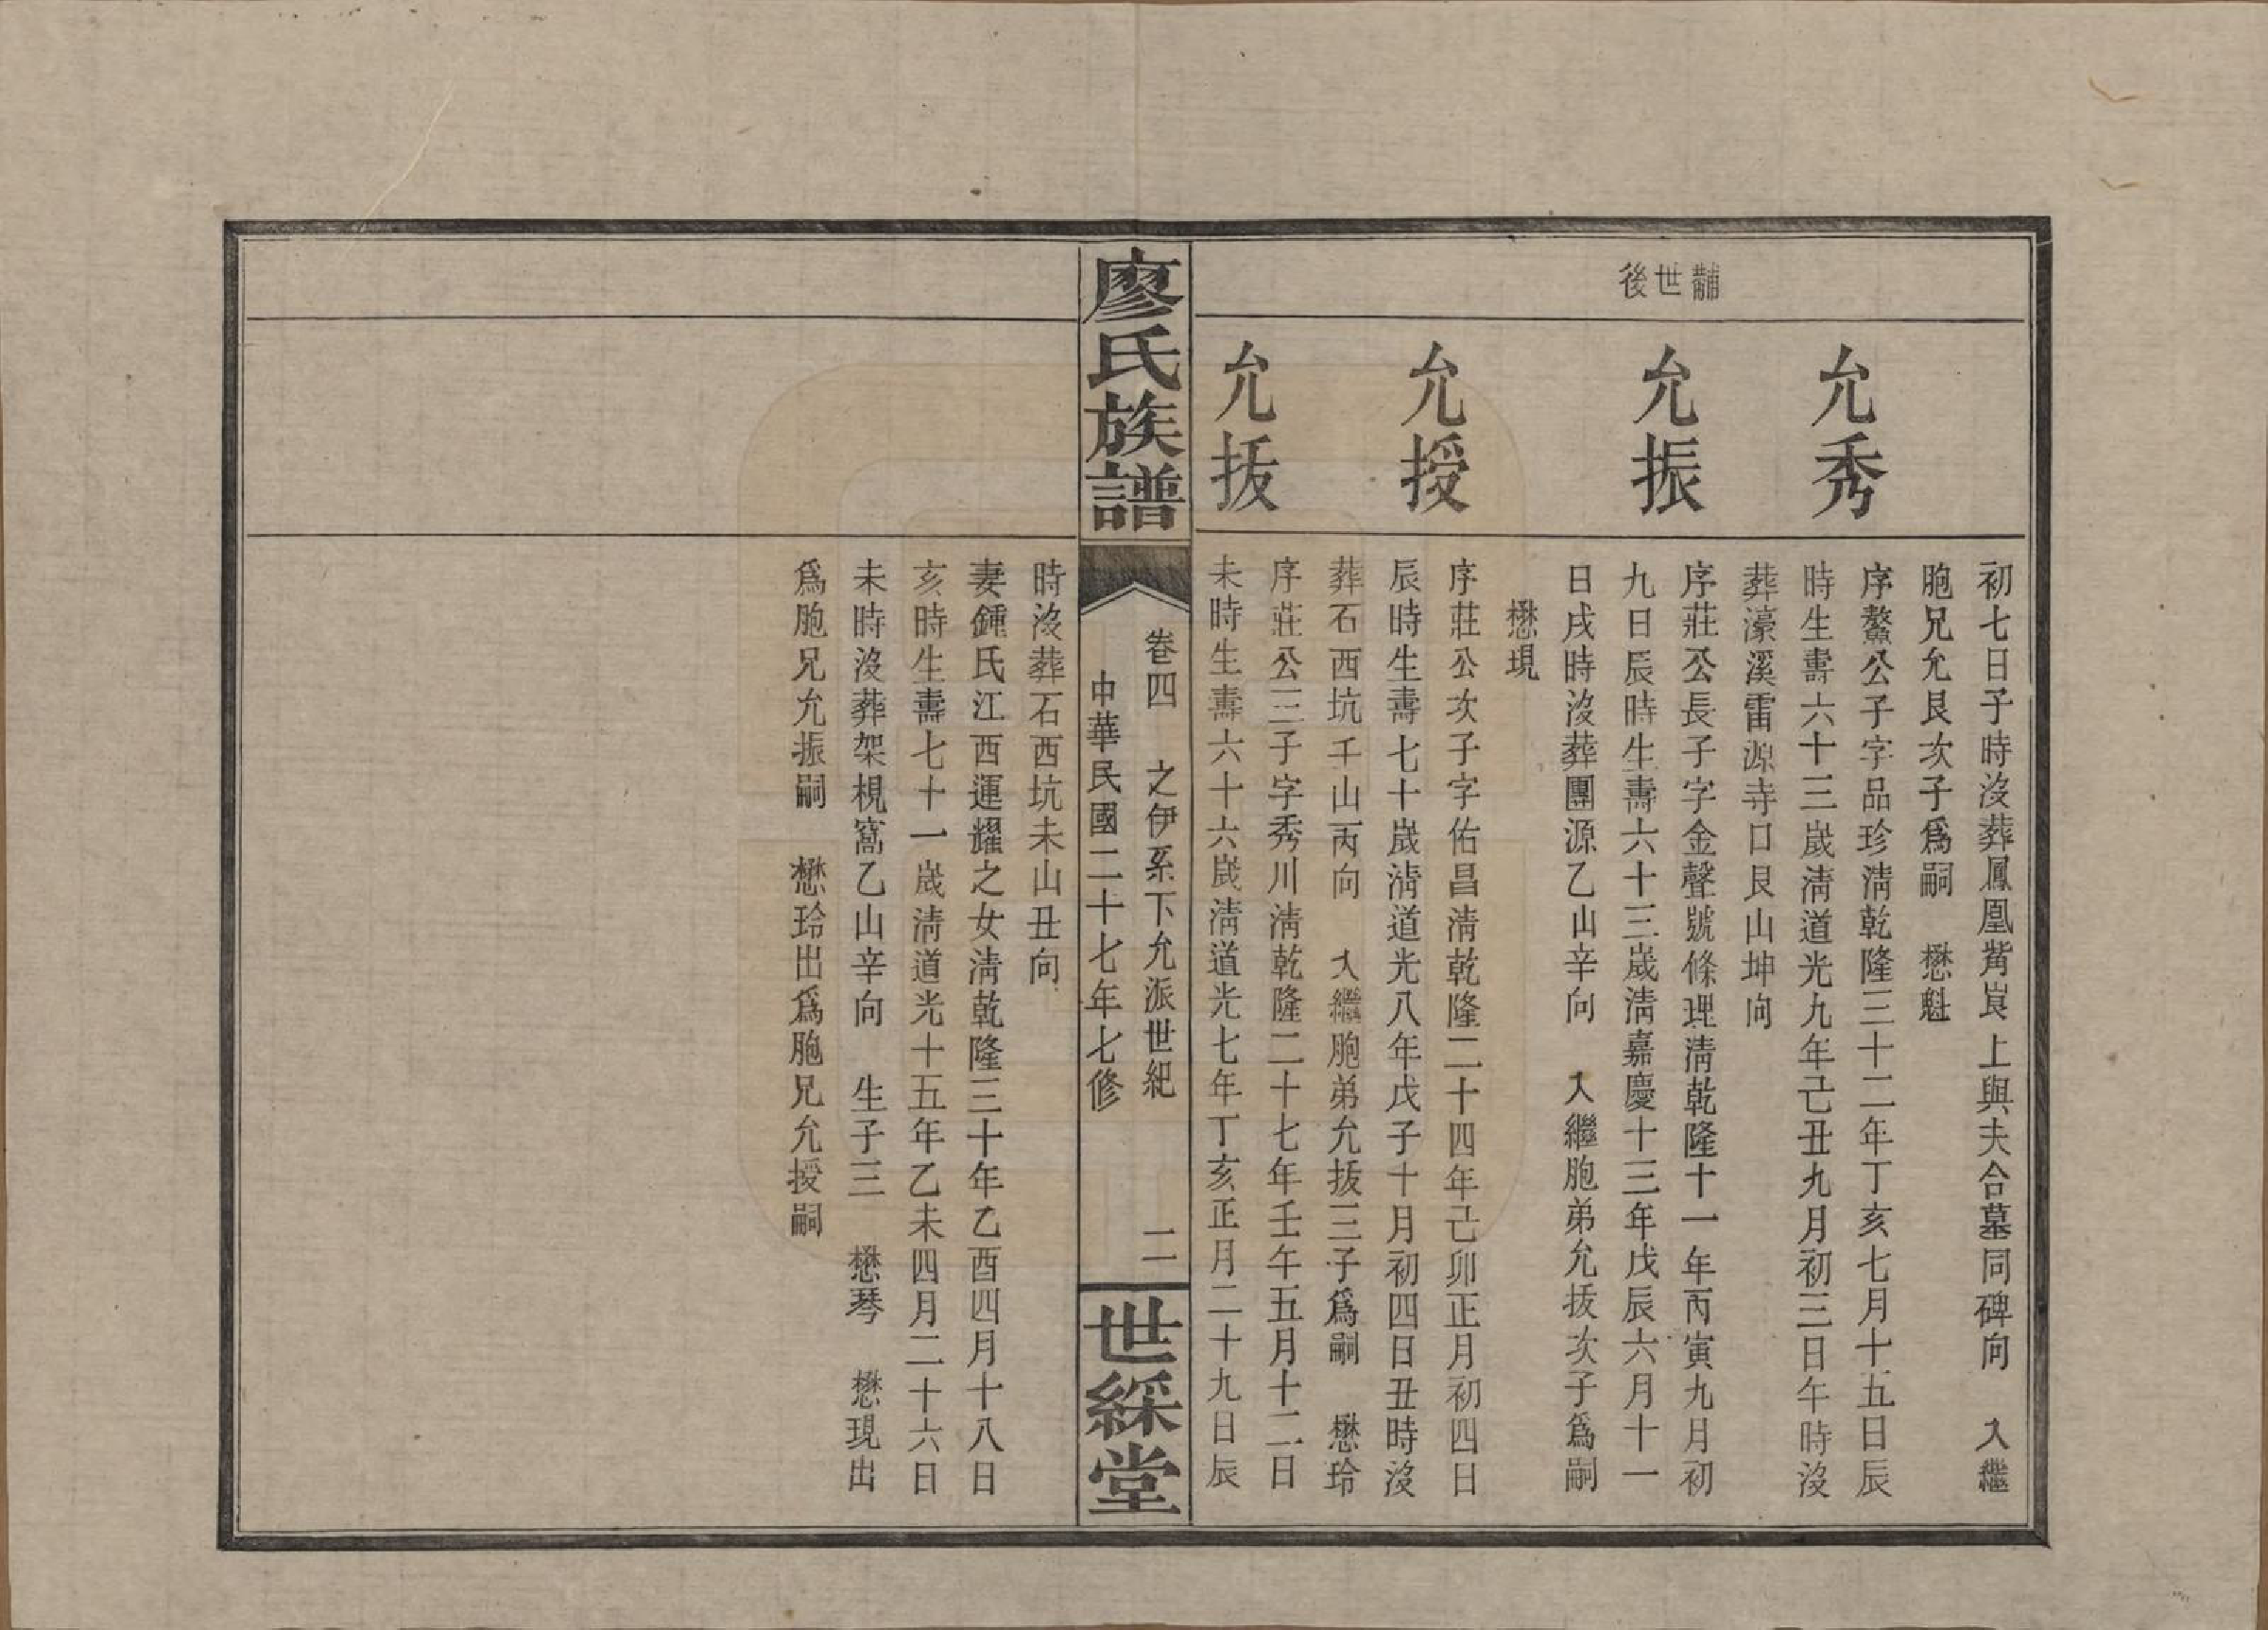 黼世後
初七日子時沒葬鳳凰嘴崀上與夫合墓同碑向　入繼
胞兄允艮次子爲嗣　懋魁
允秀
序鰲公子字品珍淸乾隆三十二年丁亥七月十五日辰
時生壽六十三歲淸道光九年己丑九月初三日午時沒
葬濠溪雷源寺口艮山坤向
允振
序莊公長子字金聲號條理淸乾隆十一年丙寅九月初
九日辰時生壽六十三歲淸嘉慶十三年戊辰六月十一
日戌時沒葬團源乙山辛向　入繼胞弟允拔次子爲嗣
懋現
允授
序莊公次子字佑昌淸乾隆二十四年己卯正月初四日
辰時生壽七十歲淸道光八年戊子十月初四日丑時沒
葬石西坑壬山丙向　入繼胞弟允拔三子爲嗣　懋玲
允拔
序莊公三子字秀川淸乾隆二十七年壬午五月十二日
未時生壽六十六歲淸道光七年丁亥正月二十九日辰
廖氏族譜
卷四　之伊系下允派世紀　二
中華民國二十七年七修
世綵堂
時沒葬石西坑未山丑向
妻鍾氏江西運耀之女淸乾隆三十年乙酉四月十八日
亥時生壽七十一歲淸道光十五年乙未四月二十六日
未時沒葬架梘窩乙山辛向　生子三　懋琴　懋現出
爲胞兄允振嗣　懋玲出爲胞兄允授嗣